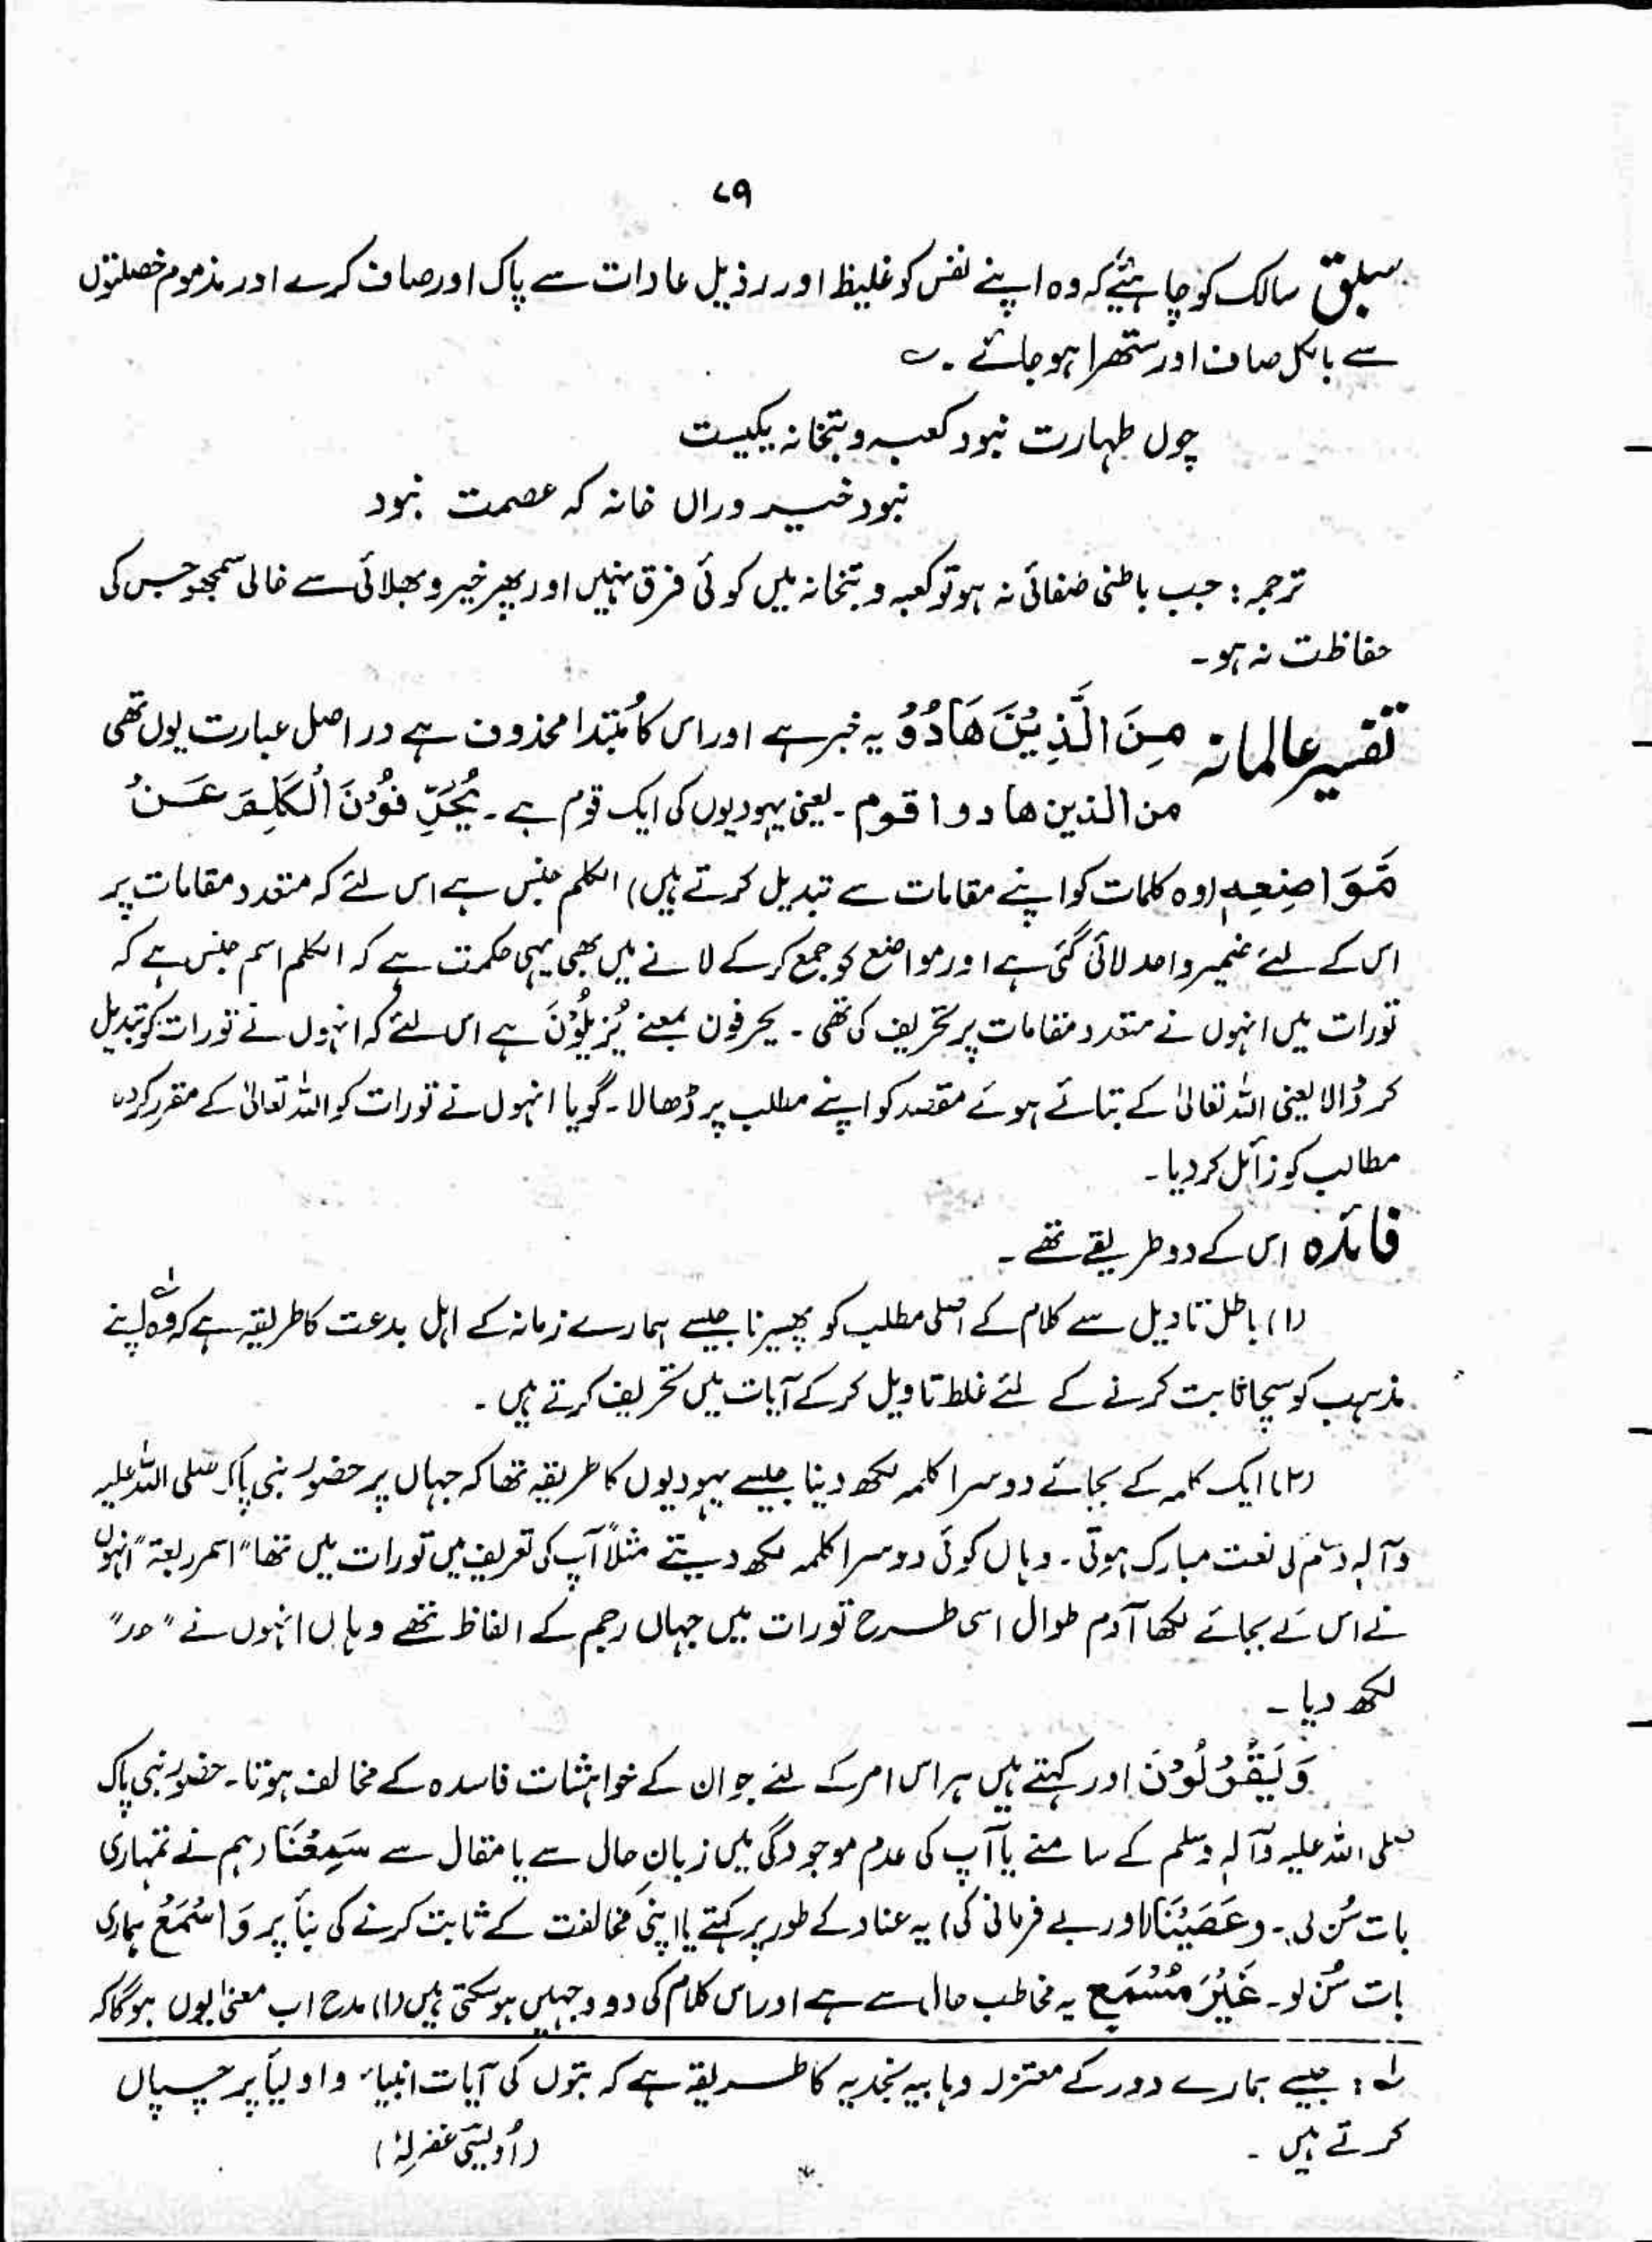 ۷۹
سبق سالک کو چاہئیے کہ وہ اپنے نفس کو غلیظ اور رذیل عادات سے پاک اور صاف کرے اور مذموم خصلتوں
سے بالکل صاف اور ستھرا ہو جائے ۔ ؎
چوں طہارت نبود کعبہ و بتخانہ یکیست
نبود خیر دراں خانہ کہ عصمت نبود
ترجمہ : جب باطنی صفائی نہ ہو تو کعبہ و بتخانہ میں کوئی فرق نہیں اور پھر خیر و بھلائی سے خالی سمجھو جس کی
حفاظت نہ ہو۔
تفسیر عالمانہ مِنَ الَّذِیْنَ ھَادُوْ یہ خبر ہے اور اس کا مُبتدا محذوف ہے در اصل عبارت یوں تھی
من الذین ھادوا قوم ۔ یعنی یہودیوں کی ایک قوم ہے ۔ یُحَرِّفُوْنَ الْکَلِمَ عَنْ
مَّوَاضِعِہٖ (وہ کلمات کو اپنے مقامات سے تبدیل کرتے ہیں) الکلم جنس ہے اس لئے کہ متعدد مقامات پر
اس کے لئے ضمیر واحد لائی گئی ہے اور مواضع کو جمع کرکے لانے میں بھی یہی حکمت ہے کہ الکلم اسم جنس ہے کہ
تورات میں انہوں نے متعدد مقامات پر تحریف کی تھی ۔ یحرفون بمعنے یُزِیلُوْنَ ہے اس لئے کہ انہوں نے تورات کو تبدیل
کر ڈالا یعنی اللہ تعالیٰ کے بتائے ہوئے مقصد کو اپنے مطلب پر ڈھالا ۔ گویا انہوں نے تورات کو اللہ تعالیٰ کے مقرر کردہ
مطالب کو زائل کر دیا ۔
فائدہ اس کے دو طریقے تھے ۔
(۱) باطل تاویل سے کلام کے اصلی مطلب کو پھیرنا جیسے ہمارے زمانہ کے اہل بدعت کا طریقہ ہے کہ وہ ؎۱ اپنے
مذہب کو سچا ثابت کرنے کے لئے غلط تاویل کر کے آیات میں تحریف کرتے ہیں ۔
(۲) ایک کلمہ کے بجائے دوسرا کلمہ لکھ دینا جیسے یہودیوں کا طریقہ تھا کہ جہاں پر حضور نبی پاک صلی اللہ علیہ
وآلہ وسلم کی نعت مبارک ہوتی ۔ وہاں کوئی دوسرا کلمہ لکھ دیتے مثلاً آپ کی تعریف میں تورات میں تھا "اسمر ربعۃ" انہوں
نے اس کے بجائے لکھا آدم طوال اسی طرح تورات میں جہاں رجم کے الفاظ تھے وہاں انہوں نے "حد"
لکھ دیا ۔
وَ یَقُوْلُوْنَ اور کہتے ہیں ہر اس امر کے لئے جو ان کے خواہشات فاسدہ کے مخالف ہوتا ۔ حضور نبی پاک
صلی اللہ علیہ وآلہ وسلم کے سامنے یا آپ کی عدم موجودگی میں زبانِ حال سے یا مقال سے سَمِعْنَا (ہم نے تمہاری
بات سُن لی ۔ وعَصَیْنَا (اور بے فرمانی کی) یہ عناد کے طور پر کہتے یا اپنی مخالفت کے ثابت کرنے کی بنأ پر وَاسْمَعْ ہماری
بات سُن لو ۔ غَیْرَ مُسْمَعٍ یہ مخاطب حال سے ہے اور اس کلام کی دو وجہیں ہو سکتی ہیں (۱) مدح اب معنیٰ یوں ہوگا کہ
؎۱ : جیسے ہمارے دور کے معتزلہ وہابیہ نجدیہ کا طریقہ ہے کہ بتوں کی آیات انبیاء و اولیأ پر چسپاں
کرتے ہیں ۔ (اُویسی غفرلہٗ)